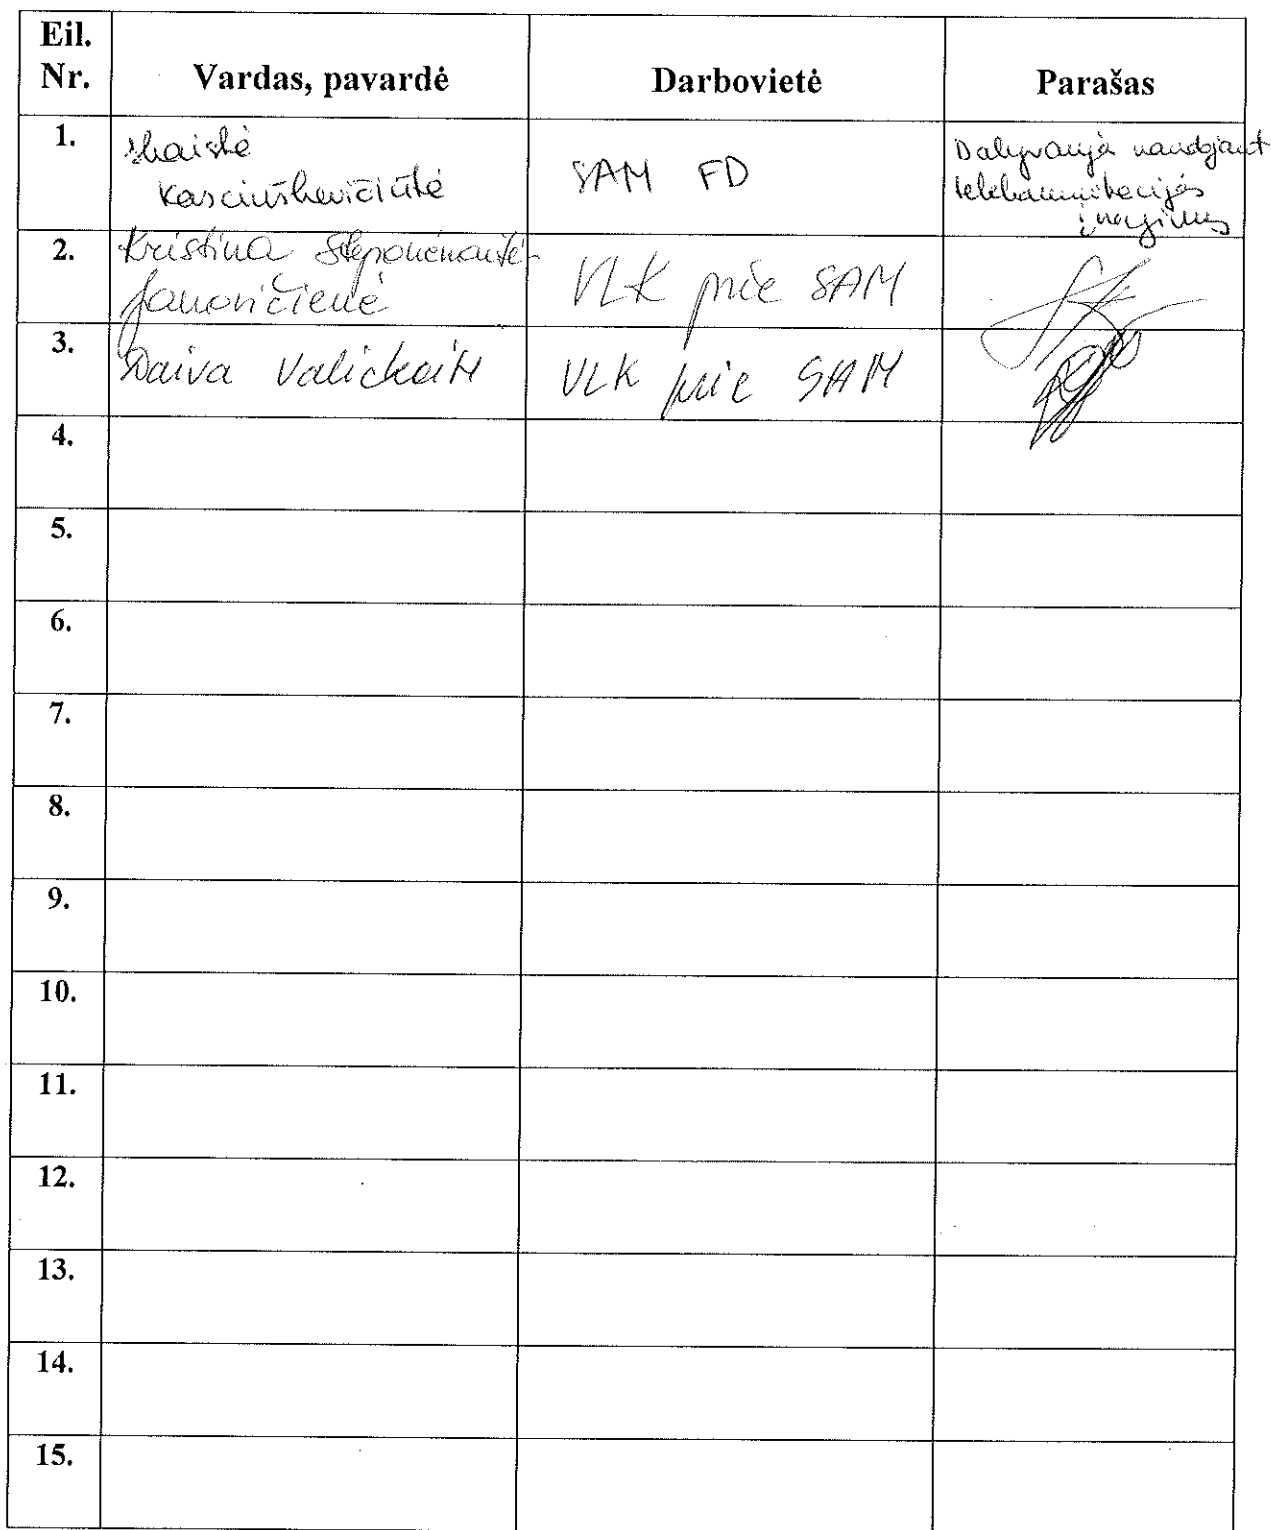 Eil. Nr. Vardas, pavardė Darbovietė Parašas
1. Skaistė Kasciuškevičiūtė SAM FD Dalyvauja naudojant telekomunikacijos įrenginius
2. Kristina Steponėnaitė-Janovičienė VLK prie SAM
3. Daiva Valickaitė VLK prie SAM
4.
5.
6.
7.
8.
9.
10.
11.
12.
13.
14.
15.